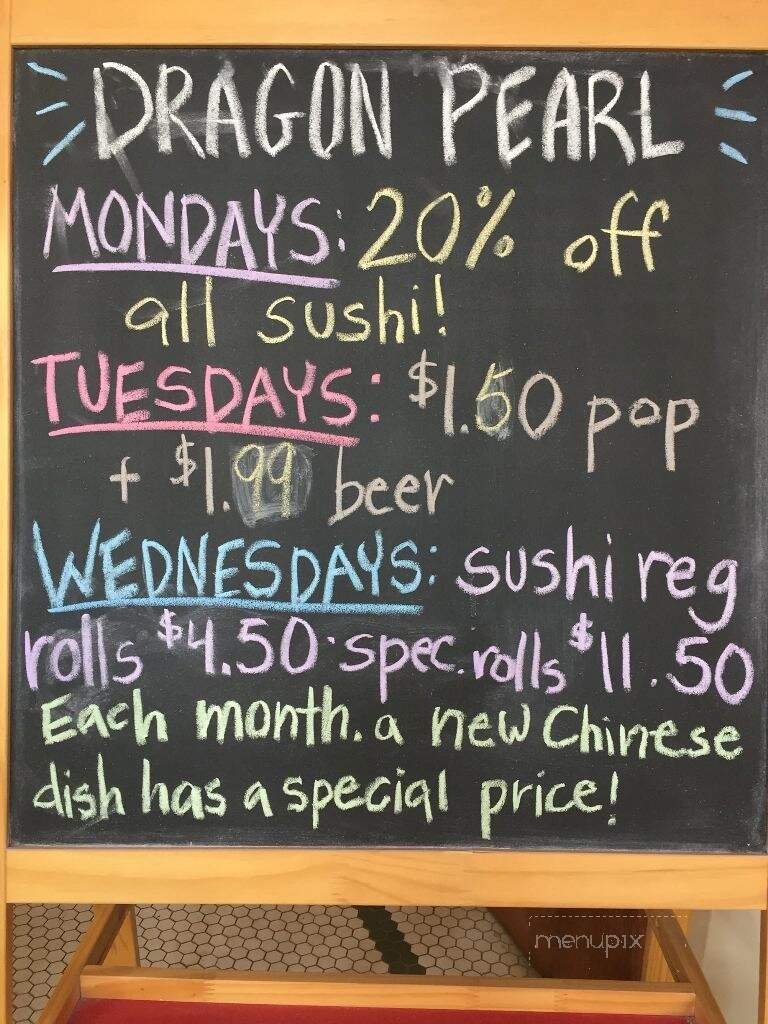 DRAGON PEARL
MONDAYS: 20% off
all sushi!
TUESDAYS: $1.50 pop
+ $1.99 beer
WEDNESDAYS: sushi reg
rolls $4.50 · spec. rolls $11.50
Each month. a new Chinese
dish has a special price!
menupix